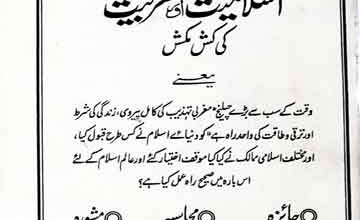 اسلامیت اور مغربیت
کی کش مکش
یعنے
وقت کے سب سے بڑے چیلنج "مغربی تہذیب کی کامل پیروی، زندگی کی شرط
اور ترقی و طاقت کی واحد راہ ہے" کو دنیائے اسلام نے کس طرح قبول کیا،
اور مختلف اسلامی ممالک نے کیا کیا موقف اختیار کئے اور عالم اسلام کے لئے
اس بارہ میں صحیح راہ عمل کیا ہے؟
جائزہ محاسبہ مشورہ